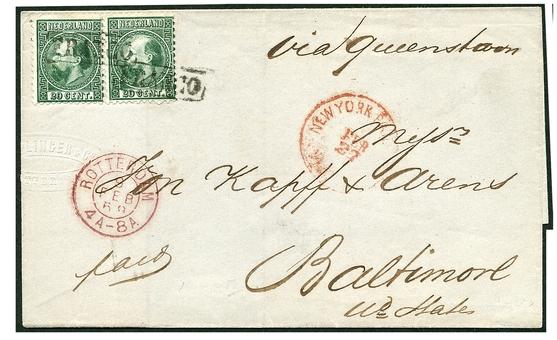 NEDERLAND NEDERLAND
20 CENT. 20 CENT.
FRANCO
via Queenstown
NEW YORK
FEB
Messrs
Von Kapff & Arens
ROTTERDAM
FEB
69
4A-8A
paid
Baltimore
Ud States